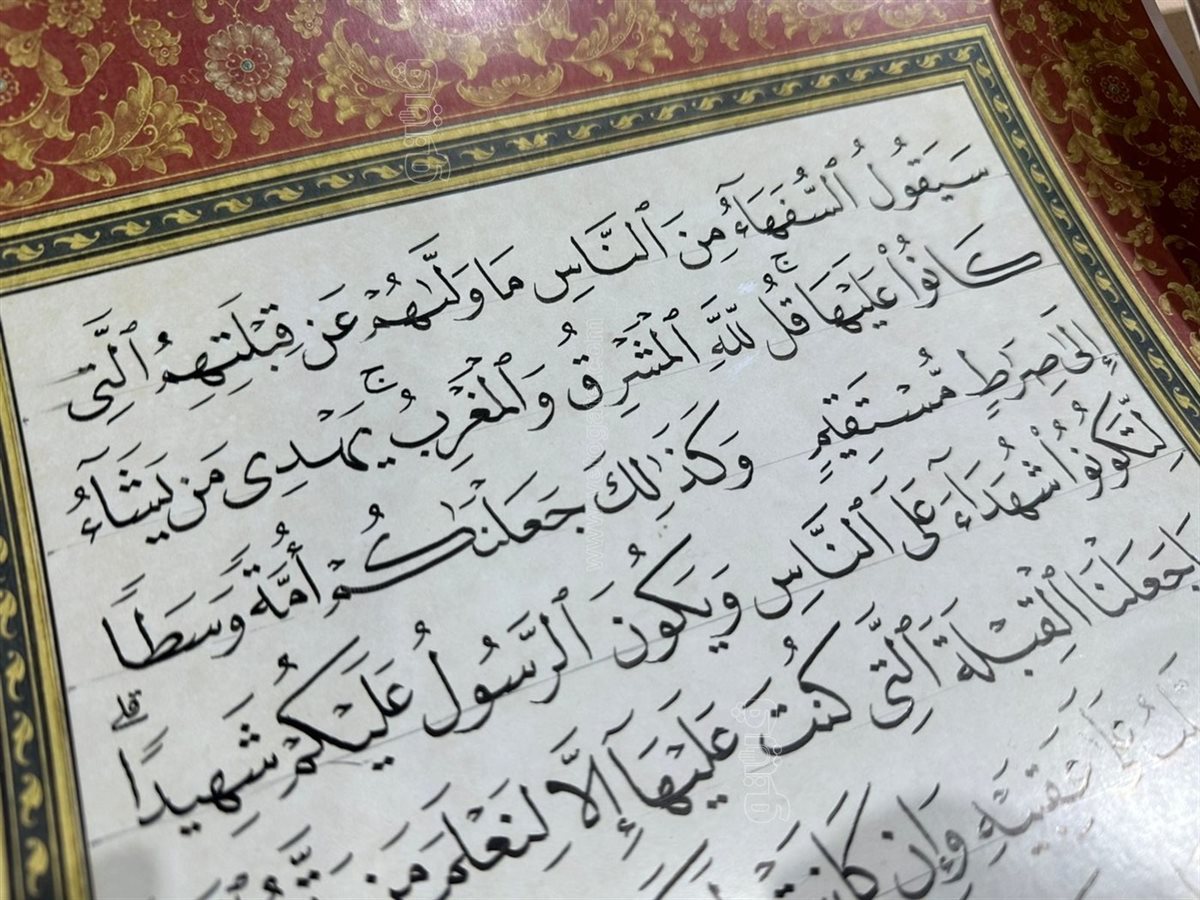 سَيَقُولُ ٱلسُّفَهَآءُ مِنَ ٱلنَّاسِ مَا وَلَّىٰهُمْ عَن قِبْلَتِهِمُ ٱلَّتِى
كَانُوا۟ عَلَيْهَا ۚ قُل لِّلَّهِ ٱلْمَشْرِقُ وَٱلْمَغْرِبُ ۚ يَهْدِى مَن يَشَآءُ
إِلَىٰ صِرَٰطٍ مُّسْتَقِيمٍ وَكَذَٰلِكَ جَعَلْنَٰكُمْ أُمَّةً وَسَطًا
لِّتَكُونُوا۟ شُهَدَآءَ عَلَى ٱلنَّاسِ وَيَكُونَ ٱلرَّسُولُ عَلَيْكُمْ شَهِيدًا ۗ
جَعَلْنَا ٱلْقِبْلَةَ ٱلَّتِى كُنتَ عَلَيْهَآ إِلَّا لِنَعْلَمَ مَن
عَلَىٰ عَقِبَيْهِ وَإِن كَانَتْ